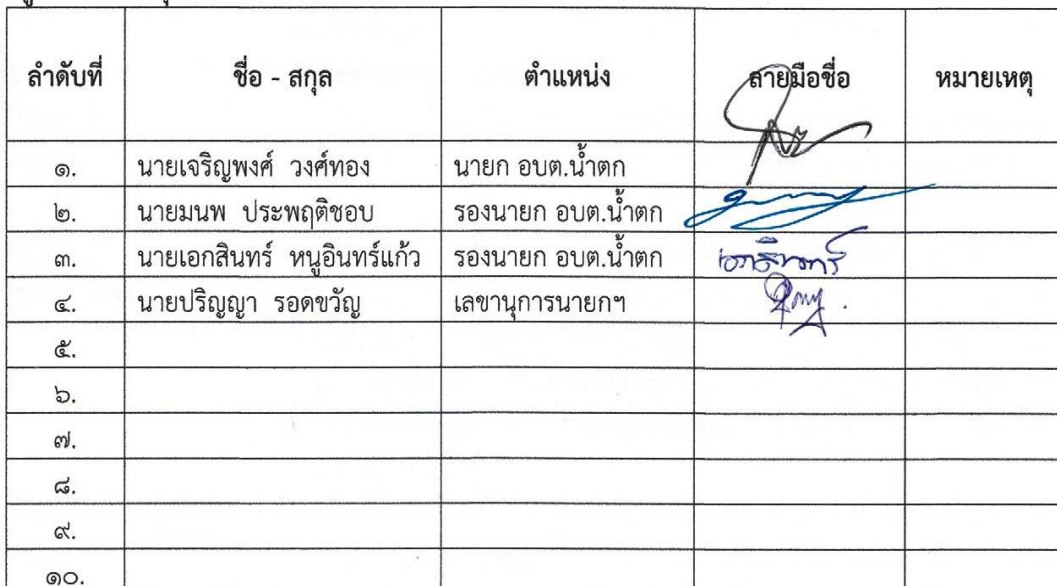 ลำดับที่ ชื่อ - สกุล ตำแหน่ง ลายมือชื่อ หมายเหตุ
๑. นายเจริญพงศ์ วงศ์ทอง นายก อบต.น้ำตก
๒. นายมนพ ประพฤติชอบ รองนายก อบต.น้ำตก
๓. นายเอกสินทร์ หนูอินทร์แก้ว รองนายก อบต.น้ำตก เอกสินทร์
๔. นายปริญญา รอดขวัญ เลขานุการนายกฯ
๕.
๖.
๗.
๘.
๙.
๑๐.